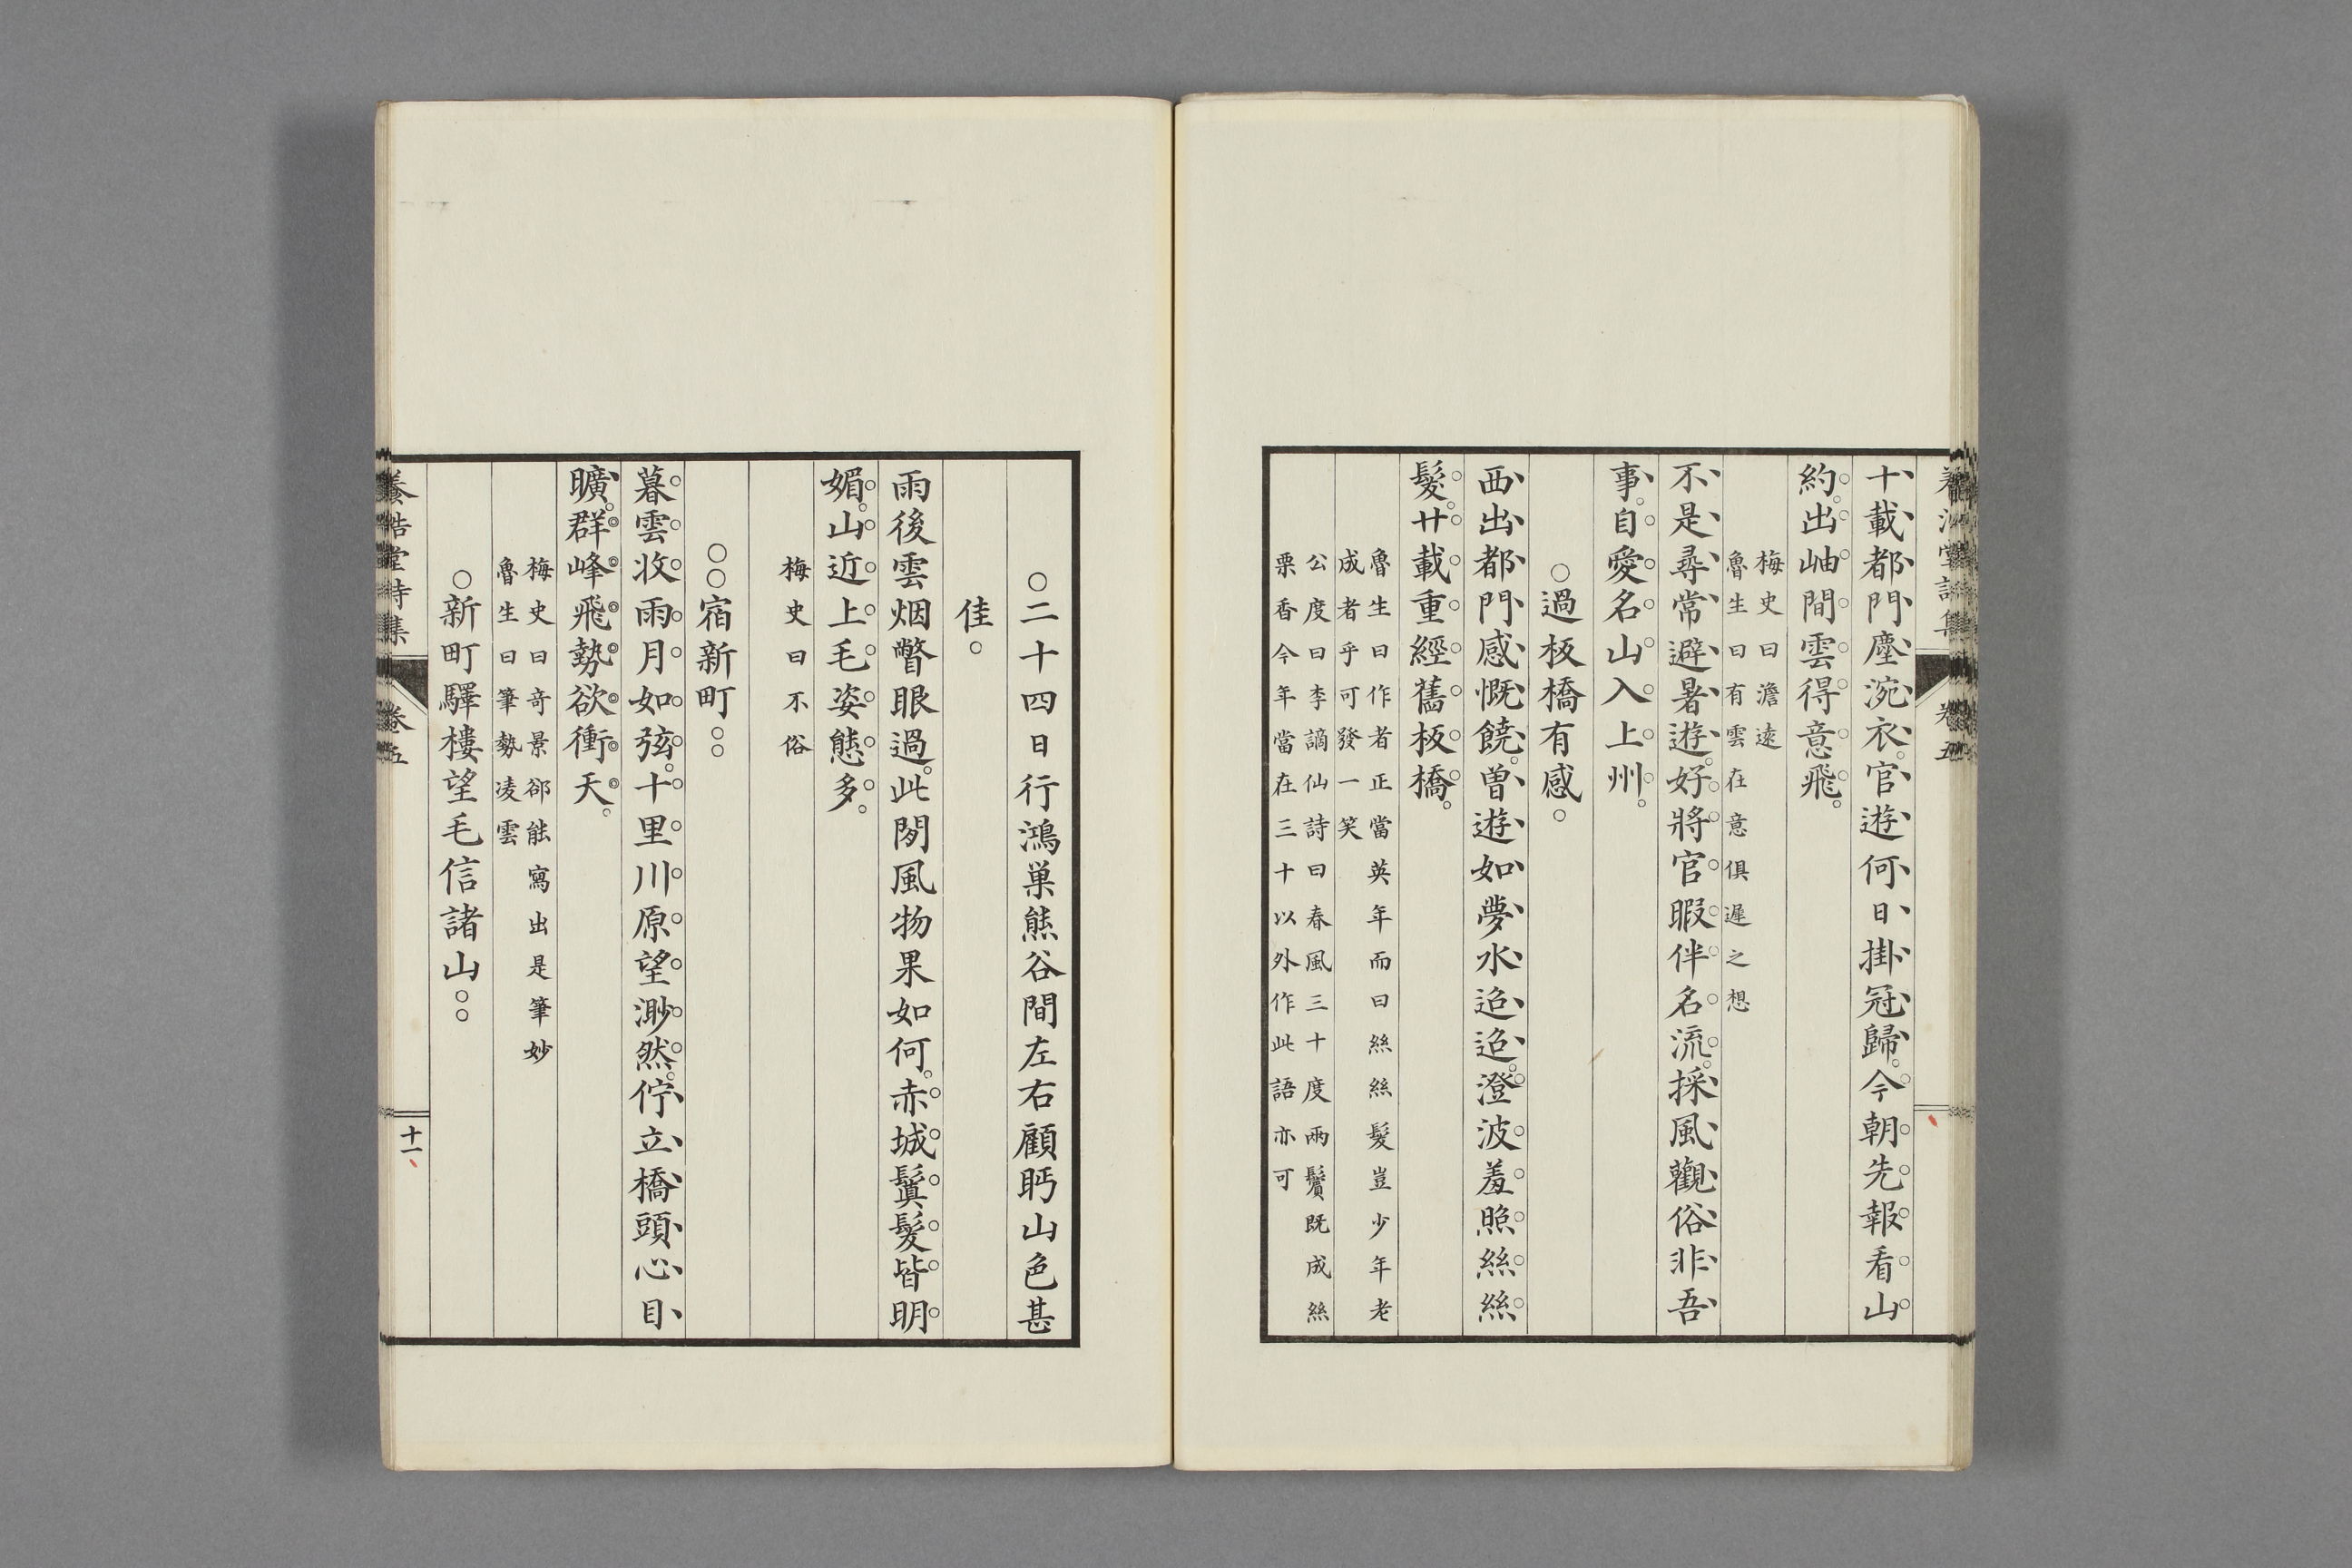 十載都門塵涴衣。官遊何日掛冠歸。今朝先報看山
約。出岫間雲得意飛。
梅史曰澹遠
魯生曰有雲在意俱遲之想
不是尋常避暑遊。好將官暇伴名流。採風觀俗非吾
事。自愛名山入上州。
○過板橋有感。
西出都門感慨饒。曽遊如夢水迢迢。澄波羞照絲絲
髮。廿載重經舊板橋。
魯生曰作者正當英年而曰絲絲髮豈少年老
成者乎可發一笑
公度曰李謫仙詩曰春風三十度兩鬢既成絲
栗香今年當在三十以外作此語亦可
養浩堂詩集
卷五
○二十四日行鴻巢熊谷間左右顧眄山色甚
佳。
雨後雲烟瞥眼過。此閒風物果如何。赤城鬒髮皆明
媚。山近上毛姿態多。
梅史曰不俗
○○宿新町○○
暮雲收雨月如弦。十里川原望渺然。佇立橋頭心目
曠。群峰飛勢欲衝天。
梅史曰奇景郤能寫出是筆妙
魯生曰筆勢凌雲
○新町驛樓望毛信諸山○○
養浩堂詩集
卷五
十一